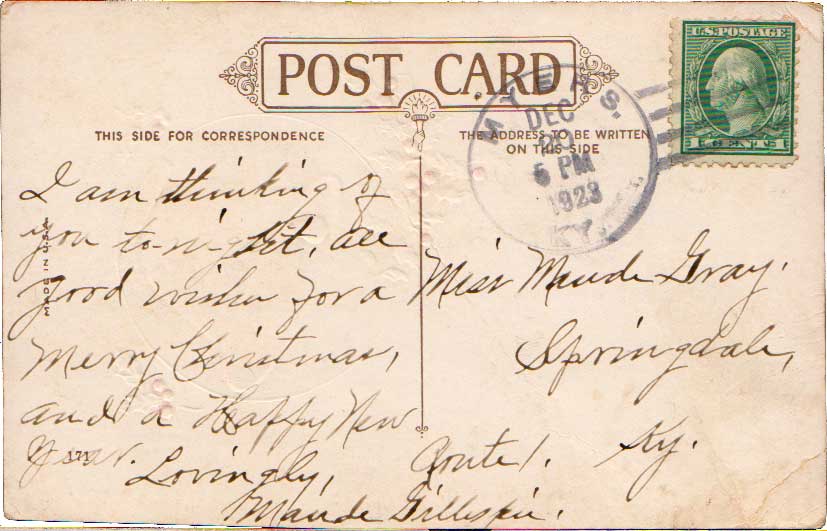 POST CARD
THIS SIDE FOR CORRESPONDENCE
THE ADDRESS TO BE WRITTEN
ON THIS SIDE
U.S. POSTAGE
1 CENTS 1
MYERS.
DEC
20
6 PM
1923
KY.
MADE IN U.S.A.
I am thinking of
you to-night, all
good wishes for a
Merry Christmas,
and a Happy New
Year.
171
Lovingly,
Maude Gillispie.
Miss Maude Gray.
Springdale,
Route 1. Ky.